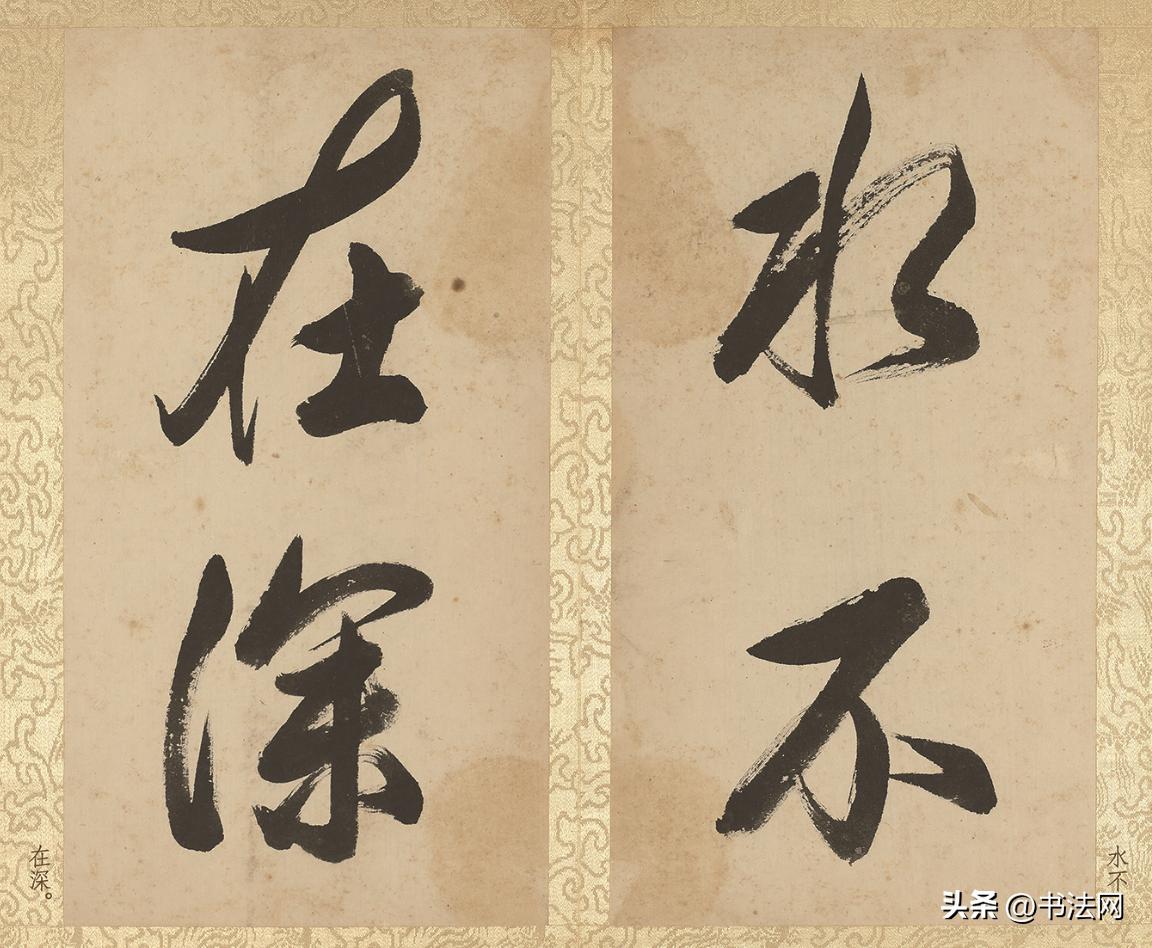 水不
在深
水不
在深。
头条 @书法网